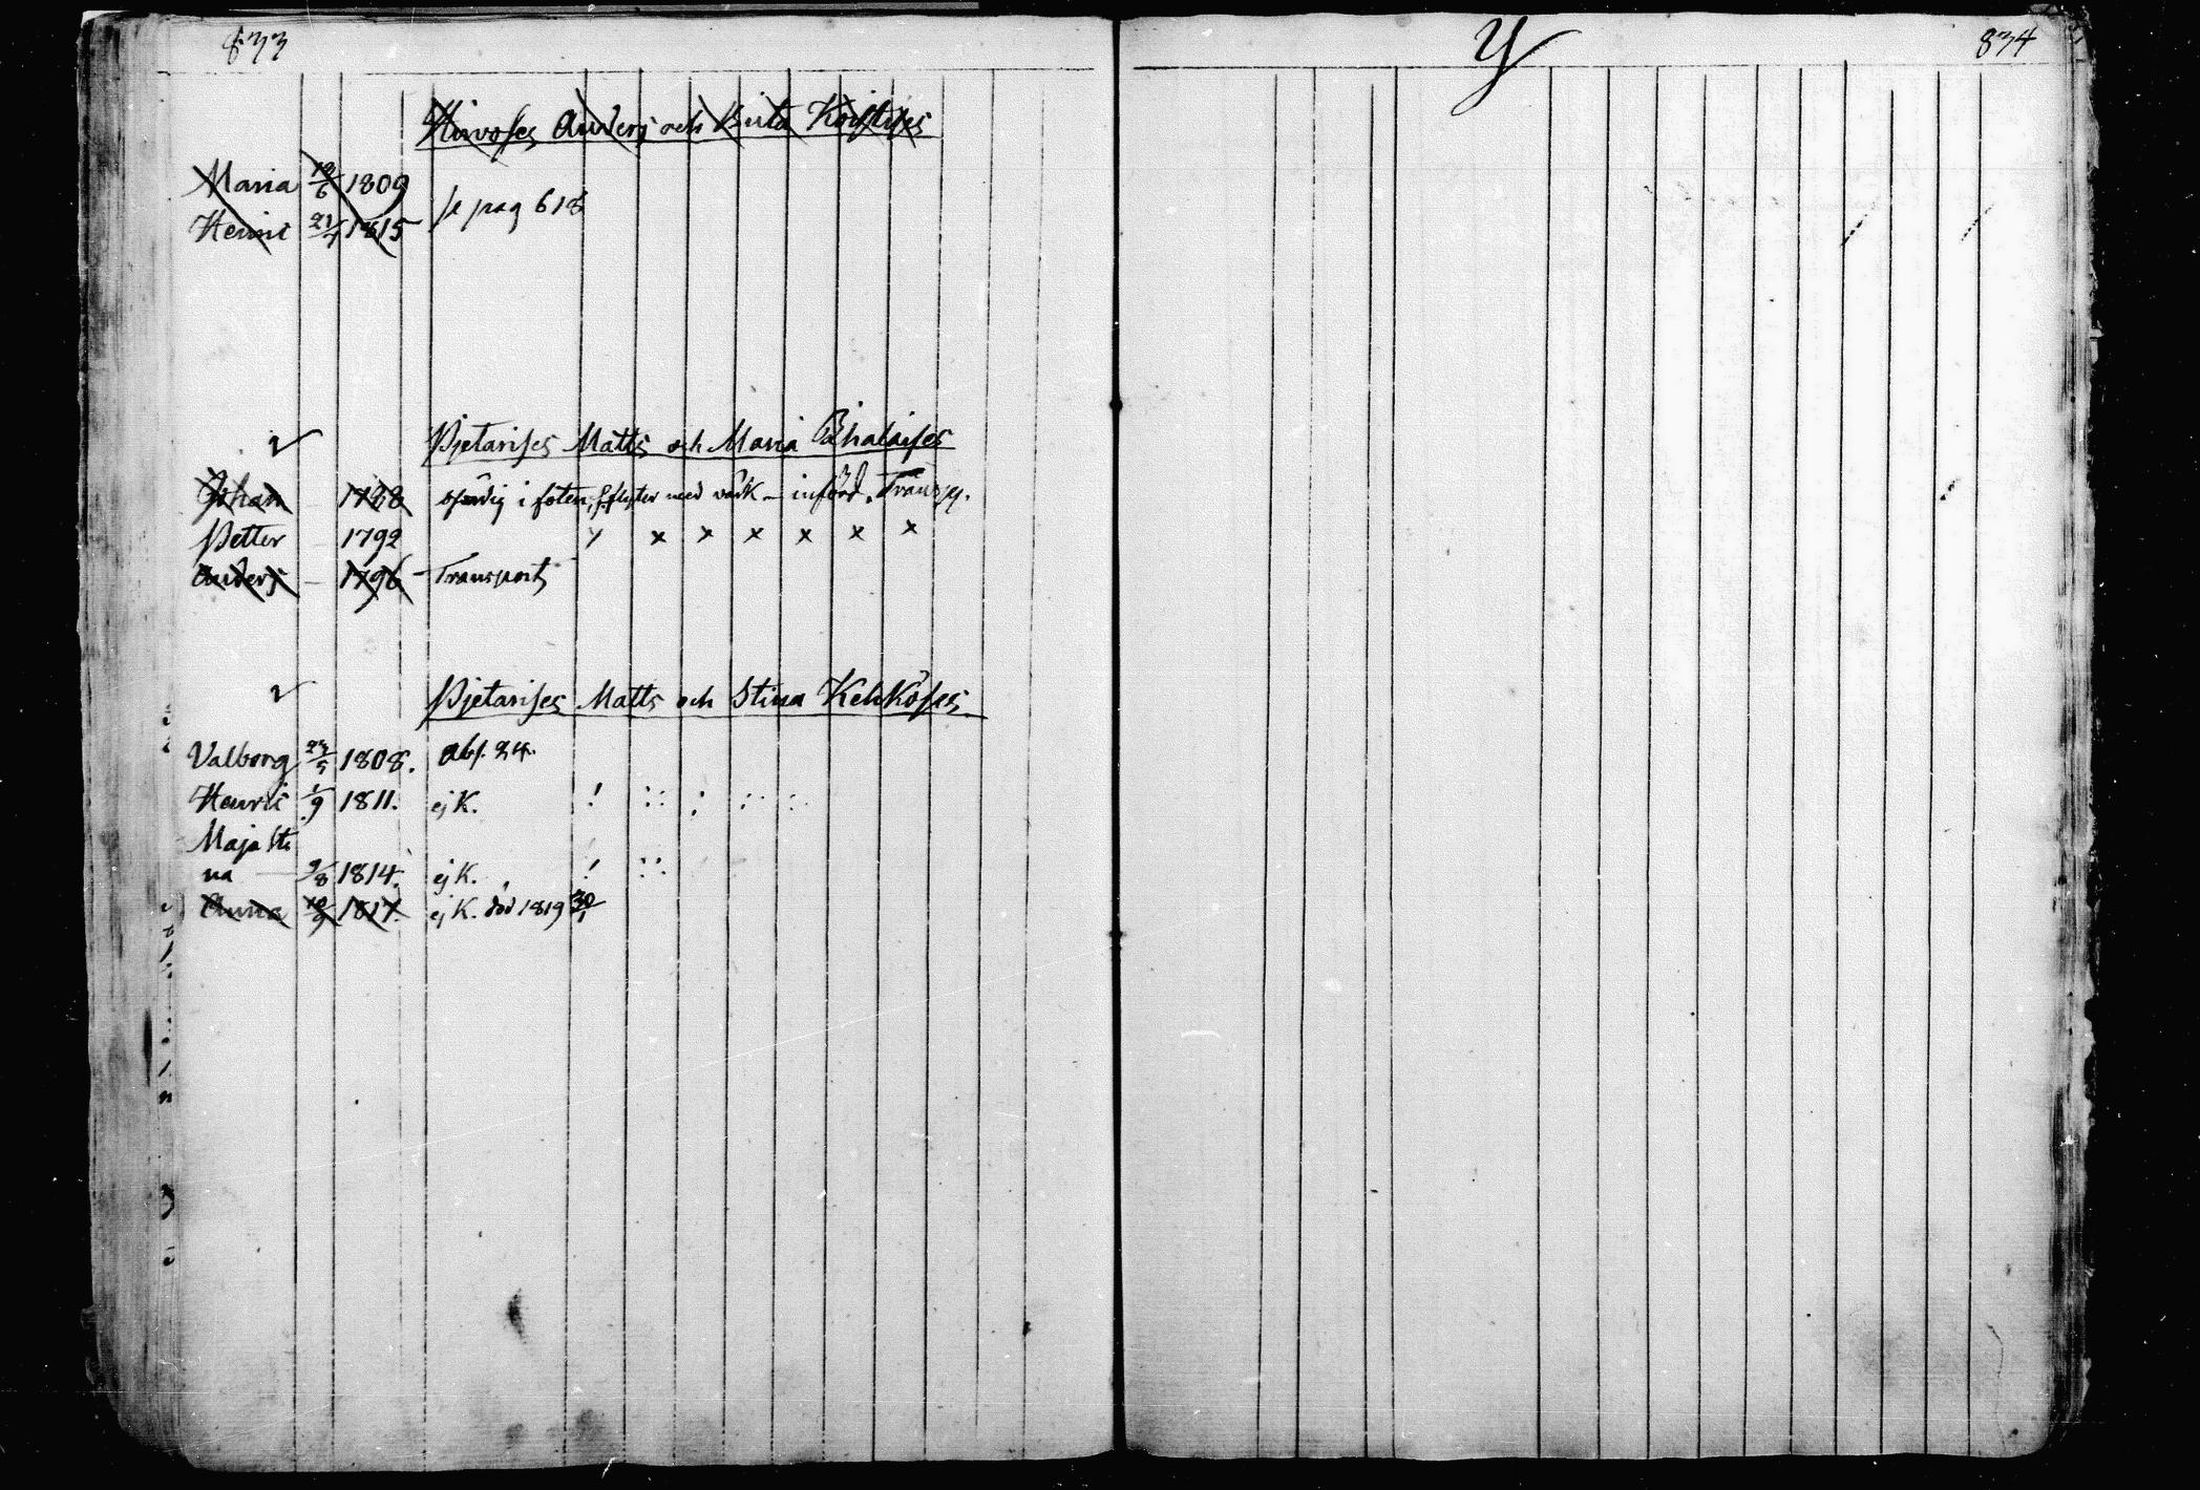 833
Hirvoses Anders och Brita Koistises
Maria 18/6 1809
Henric 21/7 1815 se pag 618
Pjetarises Matts och Maria Pihalaises
Johan 1788 ofärdig i foten, flyter med värk - införd. Transp.
Petter 1792 x x x x x x x
Anders - 1796 - Transport
Pjetarises Matts och Stina Kehköses
Valborg 23/5 1808. abs. 24.
Henric 1/9 1811. ej K.
Maja Sti
na 9/8 1814. ej K.
Anna 10/9 1817. ej K. död 1819 30/1
Y
834